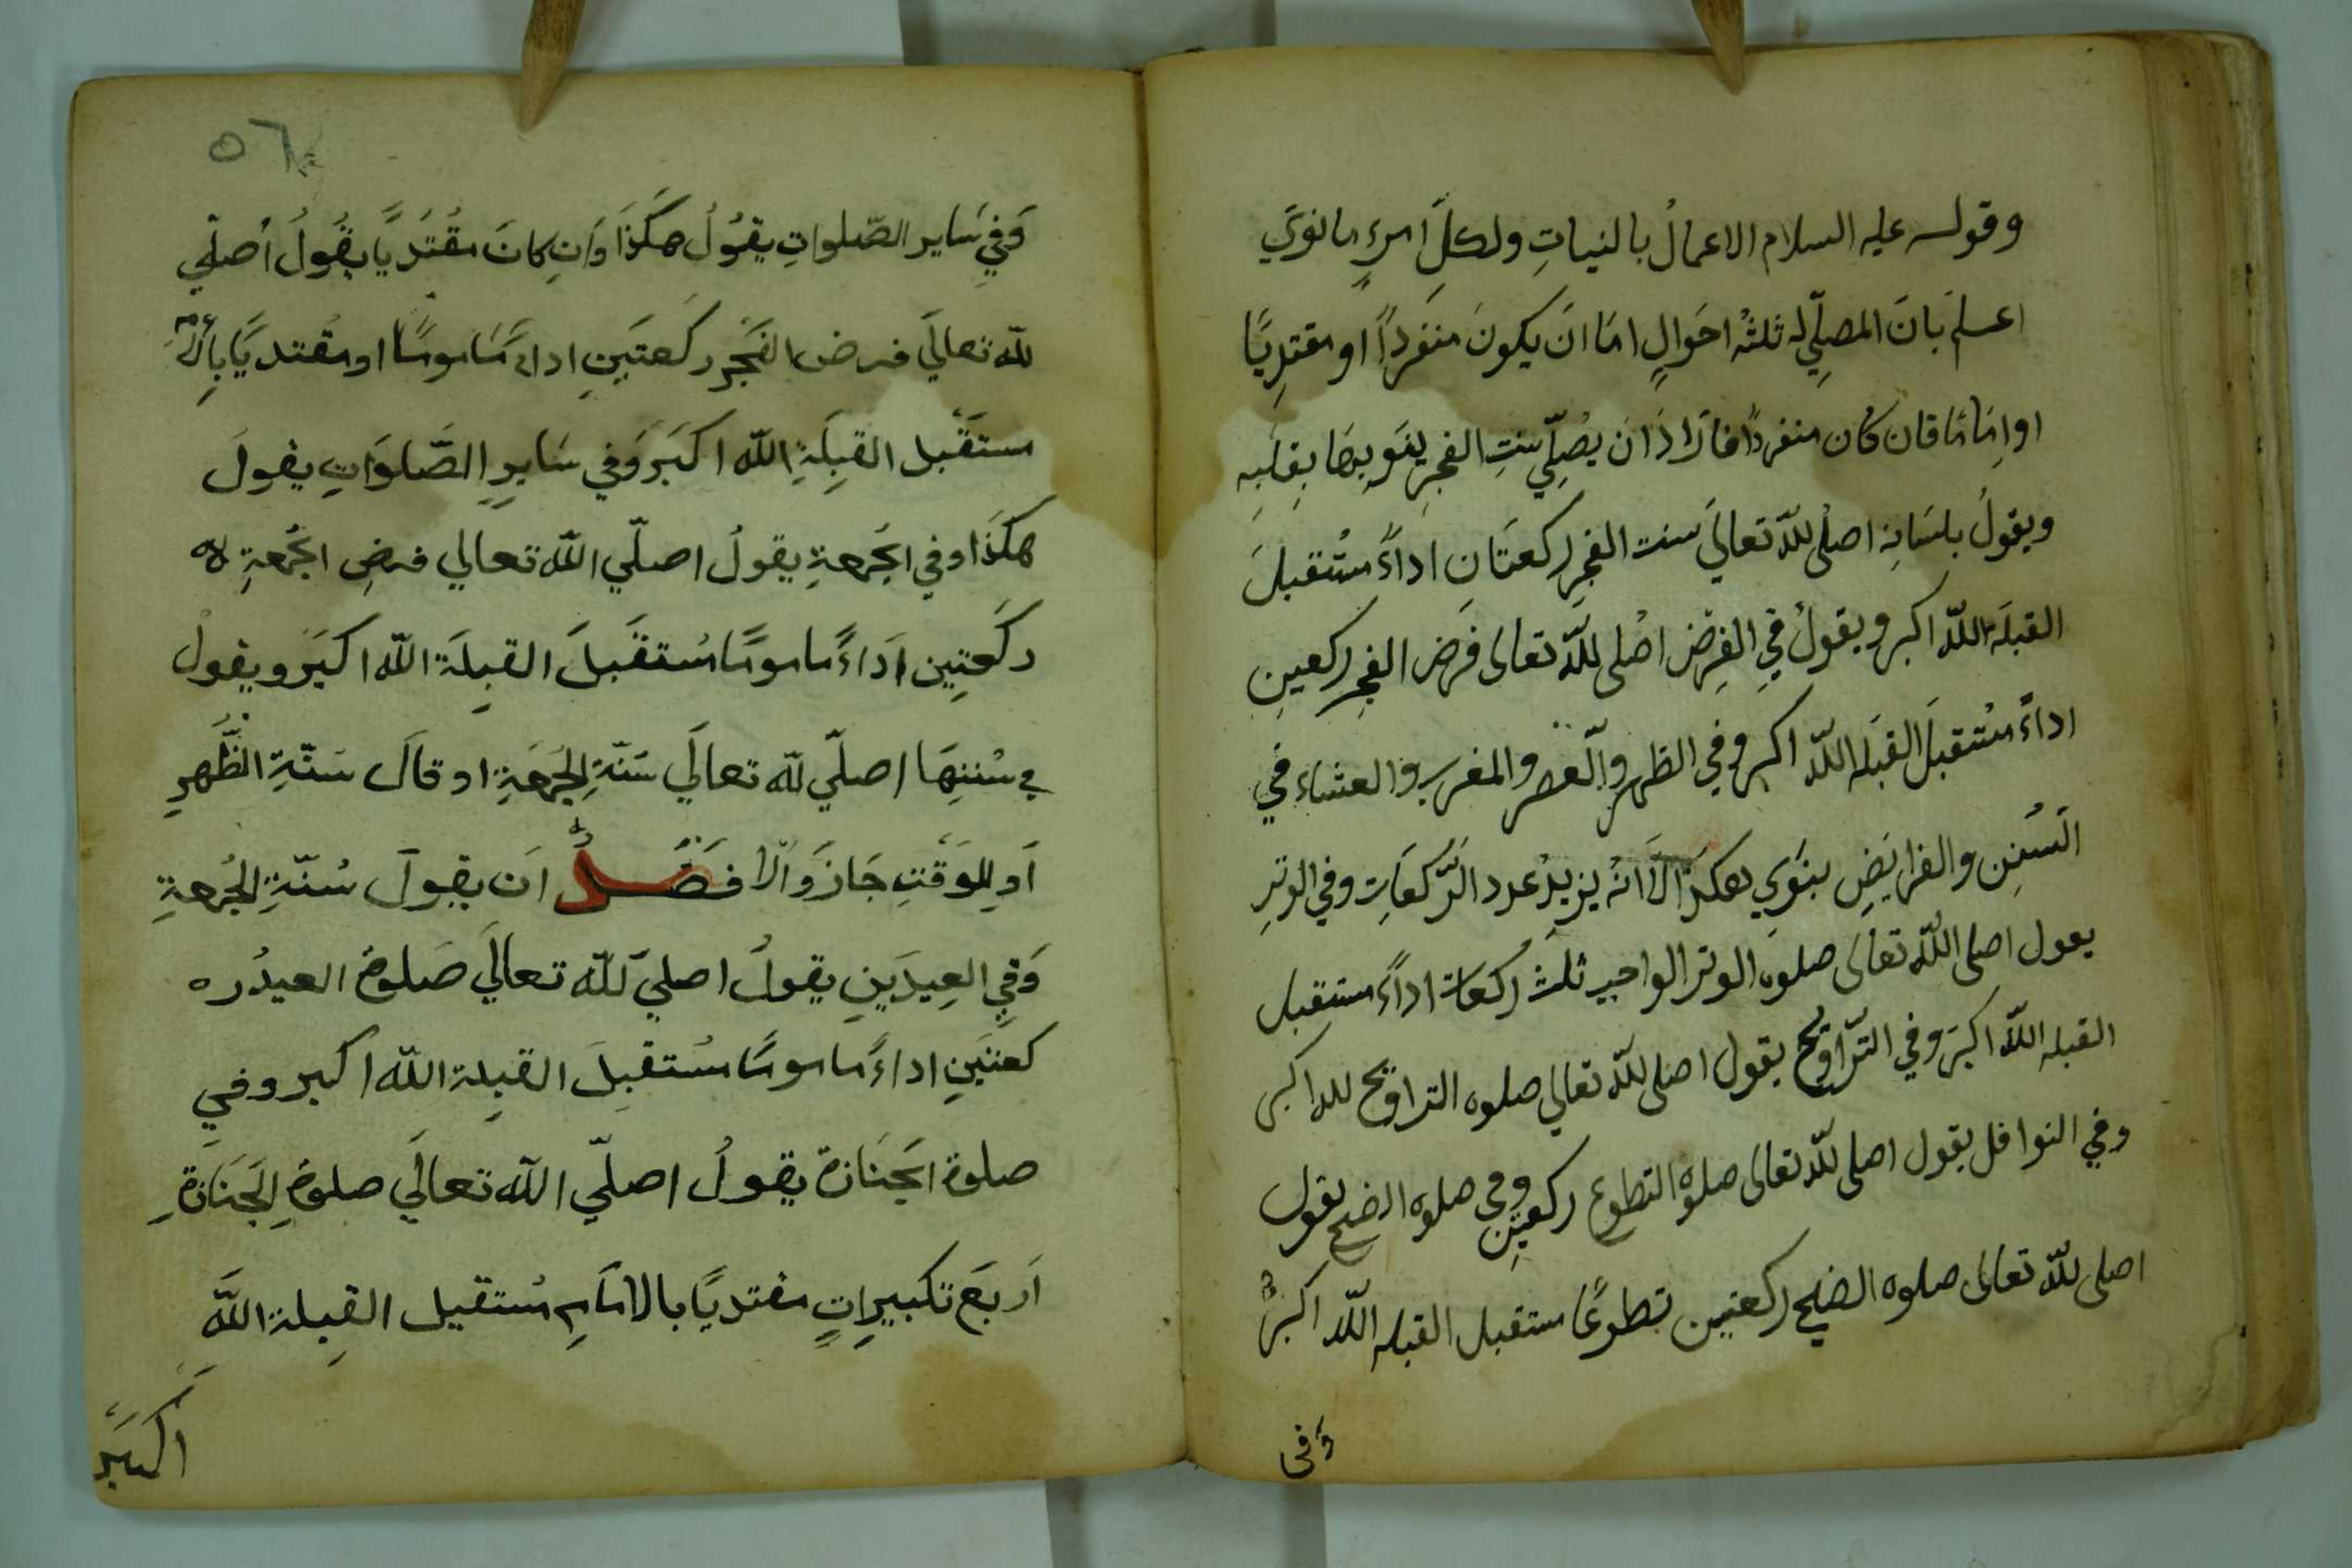 وقوله عليه السلام الاعمالُ بالنياتِ ولكلِّ امرءٍ ما نويَ
اعلم بانَ المصلّي له ثلثه احوالٍ امّا انَ يكونَ منفرداً او مقتدِيًا
او اِمَامًا فان كان منفردًا فاذا ارَادَ انَ يصُلّي سنتِ الفجرِ ينوَيها بِقلبِه
ويقولُ بلسَانِه اصلي للّه تعاليَ سنت الفجرِ ركعتَانِ اداءً مسُتقبلَ
القبلَه اللّه اكبر ويقولُ فيِ الفرضِ اصُلى للّه تعالى فَرض الفجرِ ركعينِ
اداءً مسُتقبلَ القبلَه اللّه اكبر وفي الظهرِ والعصر والمغرب والعشاء في
السُننِ والفرايَضِ ينوَي هكذَا الاَّ انَهُ يزيدُ عدد الرَّكعَاتِ وفي الوترِ
يقول اصلى اللّه تعالى صلوه الوتر الواجب ثلث ركعات اداءً مستقبل
القبله اللّه اكبرَ وفي التّراويح يقول اصلى للّه تعالي صلوه التراويح لله اكبر
وفي النوافل يقول اصلى للّه تعالى صلوة التطوع ركعتينِ وفى صلوه الضحي يقول
اصلى للّه تعالى صلوه الضحي ركعتين تطوعًا مستقبل القبله اللّه اكبرُ
وَفى
٥٦
وَفيِ سَاير الصّلواتِ يقوُلُ هكَذَا وَانِ كانَ مقُتَديًا يقُولُ اُصلّي
للّه تعاليَ فرض الفَجرِ ركَعتَينِ اداءً مَاموَمًا او مقُتديًا بِالاِ
مستَقبل القبِلَةِ اللّه اكبَر وَفي سَايرِ الصَّلوَاتِ يقولَ
هكَذَا وفي الجُمعةِ يقولُ اصلّي اللّه تعالي فرضِ الجُمعةِ
ركَعتِين اَدَاءً مامومًا مسُتقَبلَ القبِلَة اللّه اكبَر ويقولُ
في سُننِهَا اصلّي للّه تعالَي سَنّةِ الجُمعَةِ او قالَ سَنّةِ الظُّهرِ
اَو للِوَقتِ جَازَ وَالاَفضَلُ اَن يقوُلَ سُنّةِ الجُمعةِ
وَفيِ العِيدَينِ يقولُ اصليّ للّه تعاليَ صَلوة العيدُره
كعتَينِ اداءً ماموًمًا مسُتقبِلَ القبِلة اللّه اكبر وفيِ
صلوة الجَنَازة يقولُ اصلّي اللّه تعالَي صلوةِ الَجنَازةِ
اَربَعَ تكبيِراتٍ مقتديًا بالامَامِ مسُتقبل القبِلة اللّهِ
اكبَر